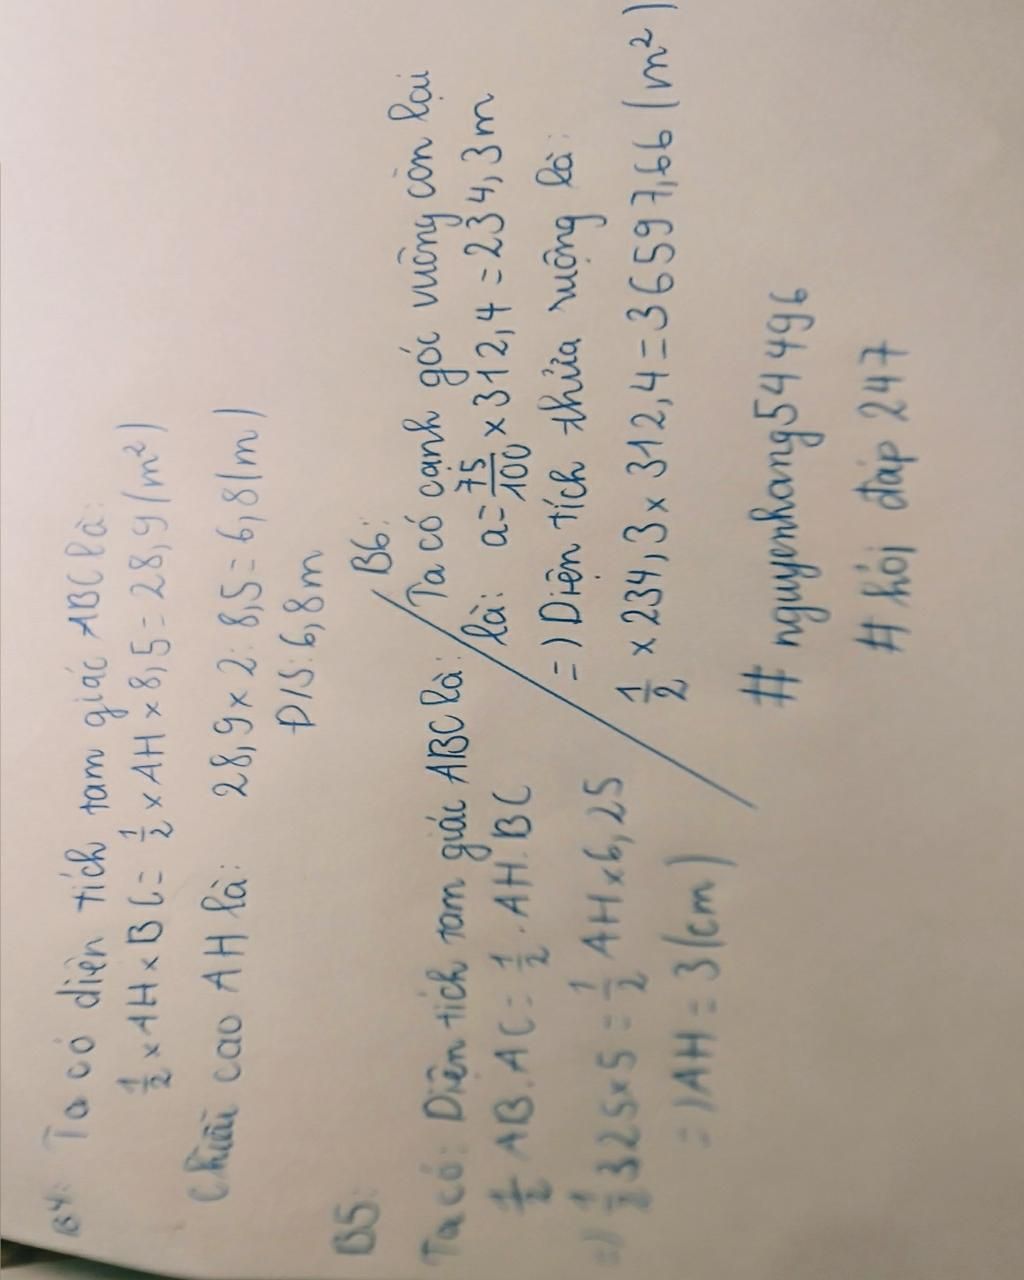 B4: Ta có diện tích tam giác ABC là:
1/2 x AH x BC = 1/2 x AH x 8,5 = 28,9 (m²)
Chiều cao AH là: 28,9 x 2 : 8,5 = 6,8 (m)
Đ/S: 6,8m
B5:
Ta có: Diện tích tam giác ABC là:
1/2 AB.AC = 1/2 . AH.BC
=) 1/2 325x5 = 1/2 AH x 6,25
=) AH = 3 (cm)
B6:
Ta có cạnh góc vuông còn lại
là: a = 75/100 x 312,4 = 234,3m
=) Diện tích thửa ruộng là:
1/2 x 234,3 x 312,4 = 36597,66 (m²)
# nguyenhang54496
# hỏi đáp 247